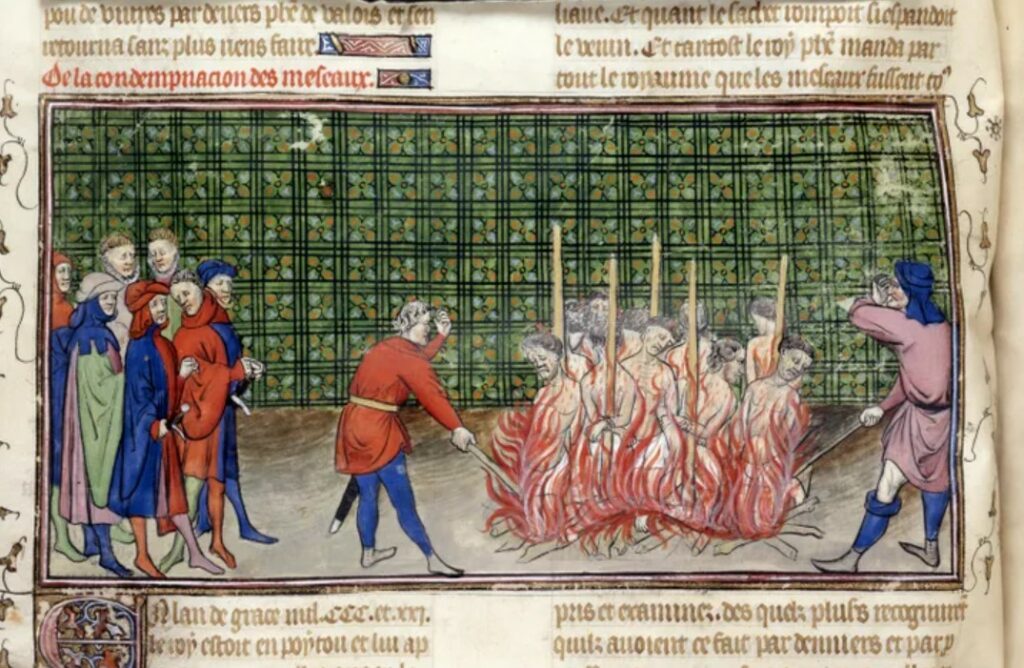 pou de viures par deuers phe de valois et sen
retourna sanz plus riens faire
De la condempnacion des meseaux.
En lan de grace mil.CCC.et.xxj.
le roy estoit en poytou et lui ap
liaue. Et quant le sachet rompoit si espandoit
le venin. Et tantost le roy phe manda par
tout le royaume que les meseaux fussent co
pris et examinez. des quelz plusrs recognurent
quilz auoient ce fait par deniers et par p